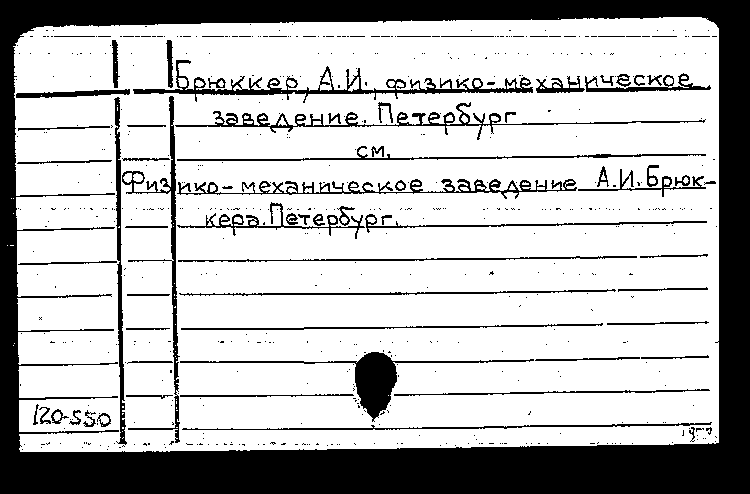 Брюккер, А.И., физико-механическое
заведение. Петербург
см.
Физико-механическое заведение А.И. Брюк-
кера. Петербург.
120-550